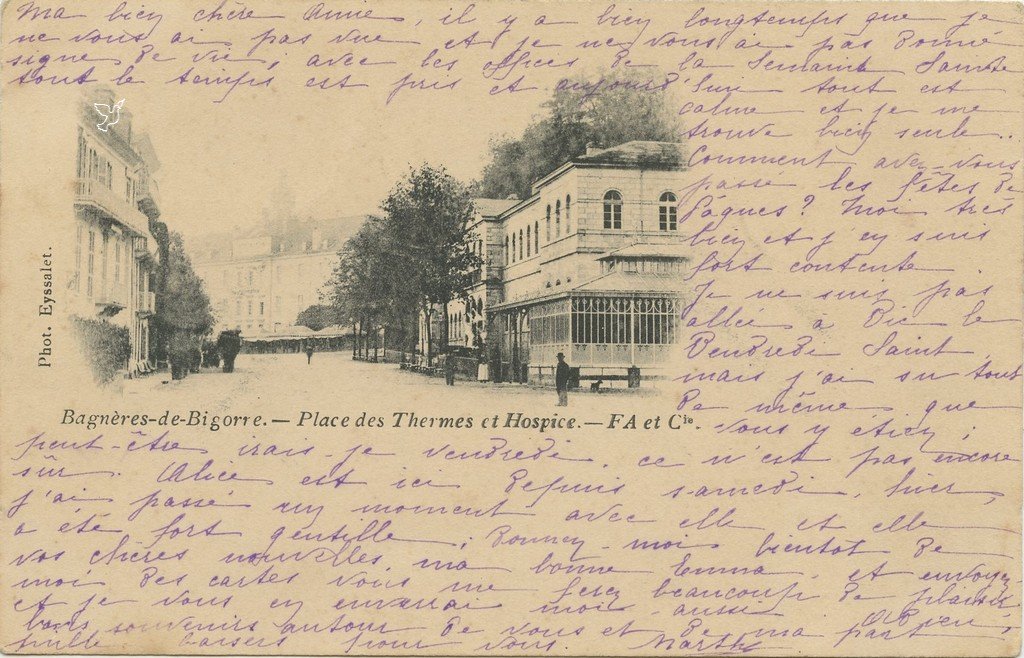 Ma bien chère Annie, il y a bien longtemps que je
ne vous ai pas vue et je ne vous ai pas donné
signe de vie, avec les offices de la Semaine Sainte
tout le temps est pris et aujourd'hui tout est
calme et je me
trouve bien seule..
Comment avez-vous
passé les fêtes de
Pâques? Moi très
bien et j'en suis
fort contente.
Je ne suis pas
allée à Vic le
Vendredi Saint,
mais j'ai su tout
de même que
vous y étiez;
peut-être irais-je vendredi, ce n'est pas encore
sûr. Alice est ici depuis samedi, hier,
j'ai passé un moment avec elle et elle
a été fort gentille; Donnez-moi bientôt de
vos chères nouvelles, ma bonne Emma, et envoyez-
moi des cartes vous me ferez beaucoup de plaisir
et je vous en enverrai moi-aussi.
bons souvenirs autour de vous et de ma part
mille baisers pour vous. Marthe
Phot. Eyssalet.
Bagnères-de-Bigorre. — Place des Thermes et Hospice. — FA et Cie.